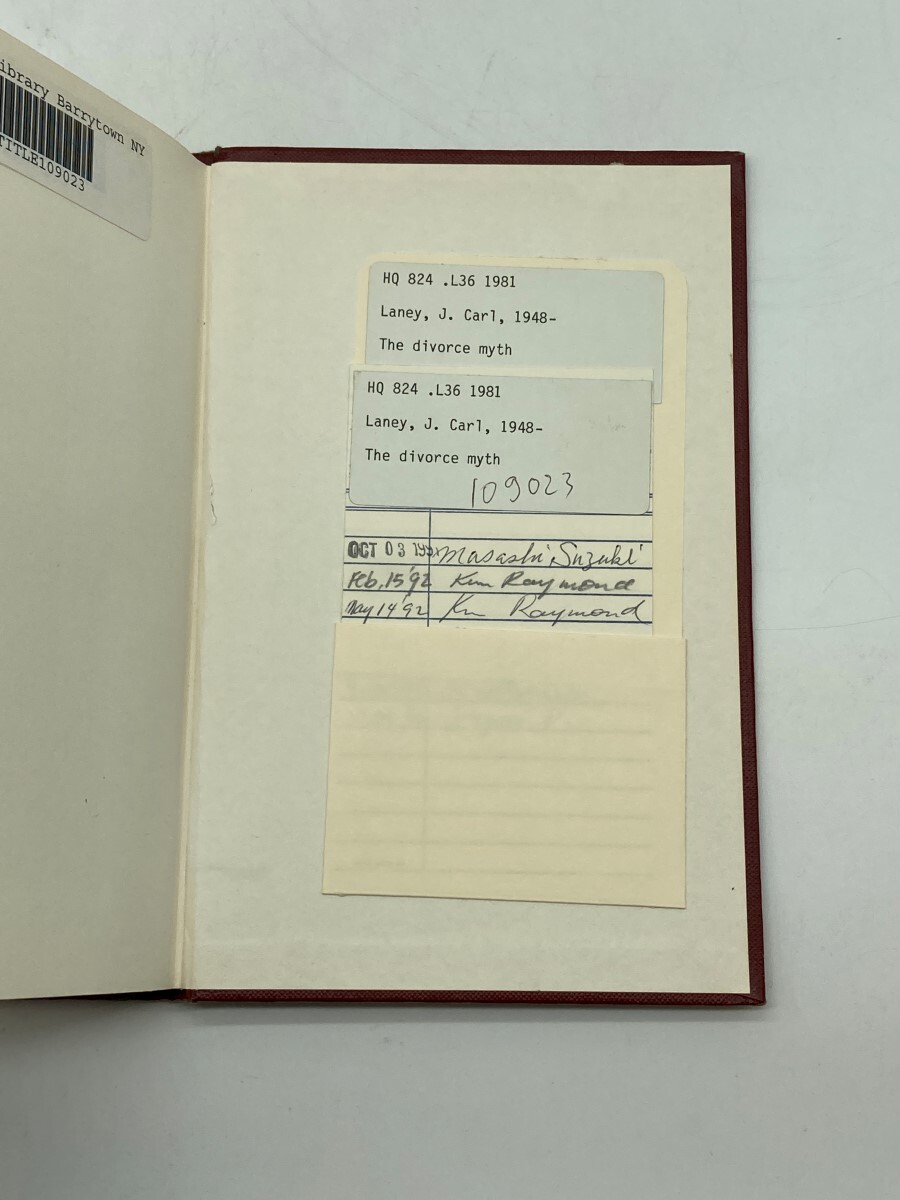 ibrary Barrytown NY
TITLE109023
HQ 824 .L36 1981
Laney, J. Carl, 1948-
The divorce myth
HQ 824 .L36 1981
Laney, J. Carl, 1948-
The divorce myth
109023
OCT 03 Masashi Suzuki
Feb, 15 '92 Kim Raymond
May 14 '92 Raymond